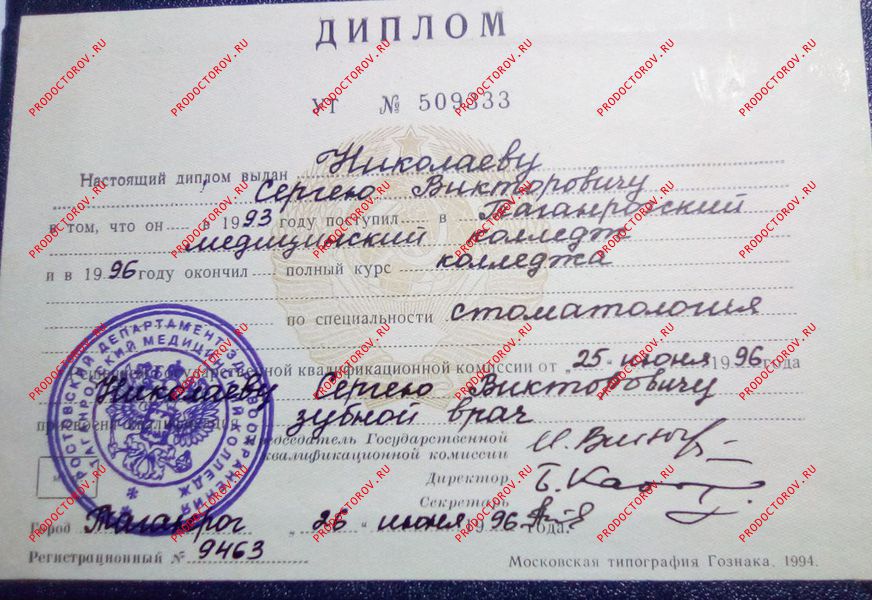 ДИПЛОМ
УТ № 509333
Настоящий диплом выдан Николаеву
Сергею Викторовичу
в том, что он в 1993 году поступил в Таганрогский
медицинский колледж
и в 1996 году окончил полный курс колледжа
по специальности стоматология
Государственной квалификационной комиссии от „25" июня 1996 года
Николаеву Сергею Викторовичу
зубной врач
Председатель Государственной
квалификационной комиссии
Директор
Секретарь
Город Таганрог „26" июня 1996 года.
Регистрационный № 9463
Московская типография Гознака. 1994.
РОСТОВСКИЙ ДЕПАРТАМЕНТ ЗДРАВООХРАНЕНИЯ
ТАГАНРОГСКИЙ МЕДИЦИНСКИЙ КОЛЛЕДЖ
PRODOCTOROV.RU